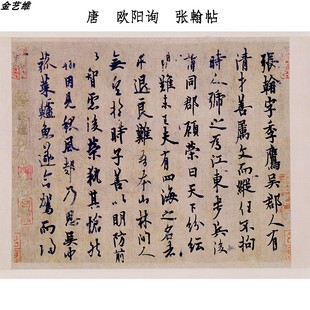 金艺维
唐 欧阳询 张翰帖
張翰字季鷹吳郡人有
清才善屬文而縱任不拘
時人號之為江東步兵後
謂同郡顧榮曰天下紛紜
禍難未已夫有四海之名者
求退良難吾本山林間人
無望於時子善以明防前
以智慮後榮執其愴然
翰因見秋風起乃思吳中
菰菜鱸魚遂命駕而歸